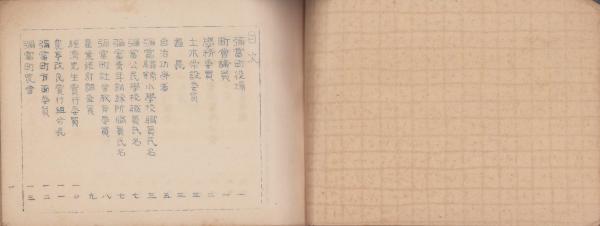 目次
彌富町役場 一
町會議員 一
學務委員 二
土木常設委員 三
區長 三
自治功勞者 五
彌富尋常小學校職員氏名 三
彌富公民學校職員氏名 七
彌富青年訓練所職員氏名 七
彌富町社會教育委員 八
産業統計調査員 九
經濟更生實行委員 一〇
農事改良實行組合長 一一
彌富町方面委員 一二
彌富町農會 一三